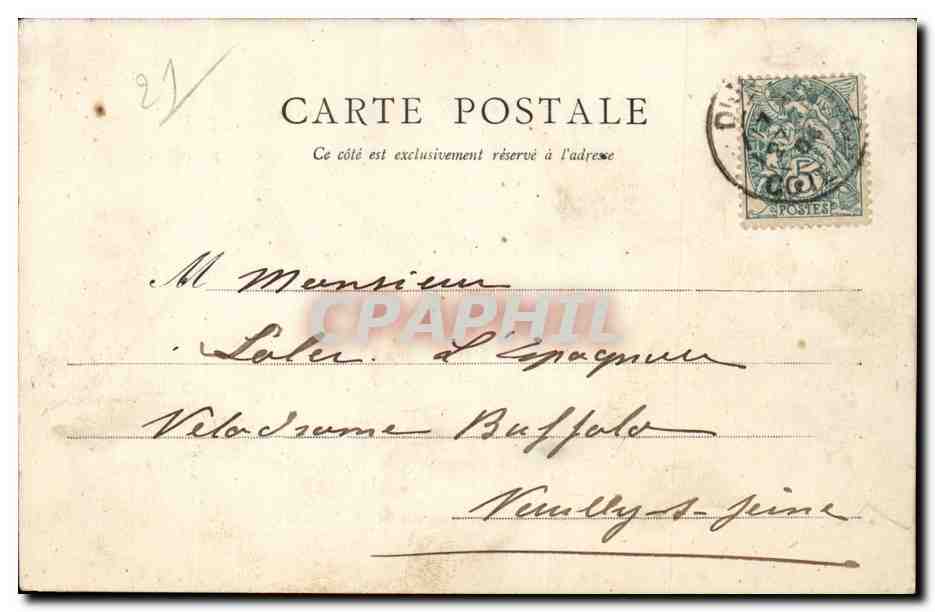 21
CARTE POSTALE
Ce côté est exclusivement réservé à l'adresse
5
POSTES
M Monsieur
CPAPHIL
L'Espagnon
Velodrome Buffalo
Neuilly-s-Seine